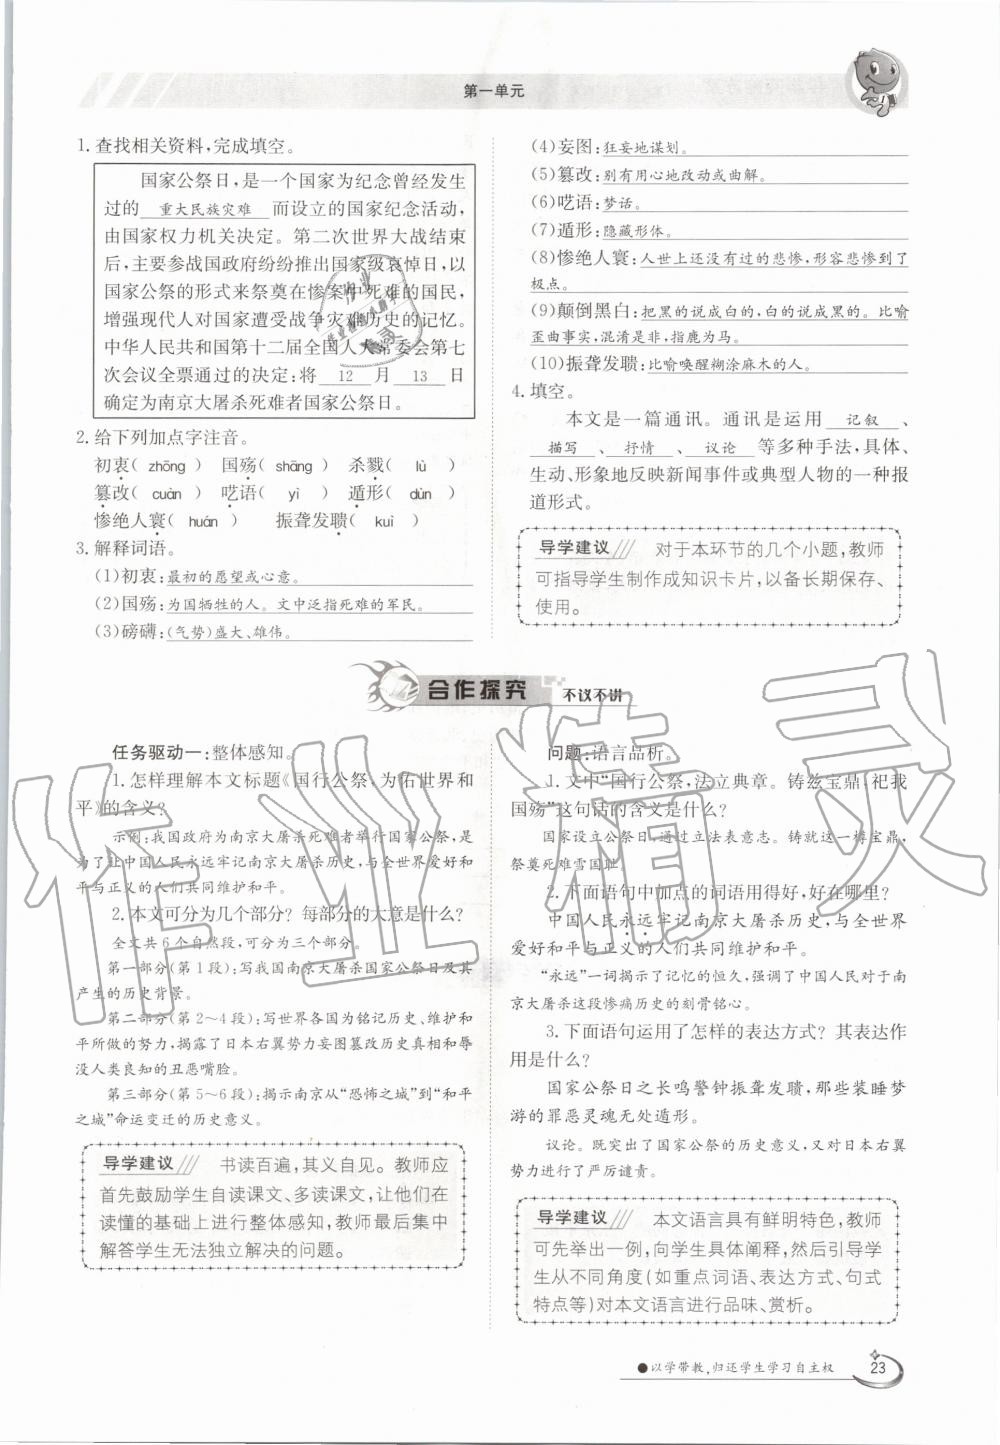 第一单元
1. 查找相关资料,完成填空。
国家公祭日,是一个国家为纪念曾经发生
过的 重大民族灾难 而设立的国家纪念活动,
由国家权力机关决定。第二次世界大战结束
后,主要参战国政府纷纷推出国家级哀悼日,以
国家公祭的形式来祭奠在惨案中死难的国民,
增强现代人对国家遭受战争灾难历史的记忆。
中华人民共和国第十二届全国人大常委会第七
次会议全票通过的决定:将 12 月 13 日
确定为南京大屠杀死难者国家公祭日。
2. 给下列加点字注音。
初衷( zhōng ) 国殇( shāng ) 杀戮( lù )
篡改( cuàn ) 呓语( yì ) 遁形( dùn )
惨绝人寰( huán ) 振聋发聩( kuì )
3. 解释词语。
(1)初衷:最初的愿望或心意。
(2)国殇:为国牺牲的人。文中泛指死难的军民。
(3)磅礴:(气势)盛大、雄伟。
(4)妄图:狂妄地谋划。
(5)篡改:别有用心地改动或曲解。
(6)呓语:梦话。
(7)遁形:隐藏形体。
(8)惨绝人寰:人世上还没有过的悲惨,形容悲惨到了
极点。
(9)颠倒黑白:把黑的说成白的,白的说成黑的。比喻
歪曲事实,混淆是非,指鹿为马。
(10)振聋发聩:比喻唤醒糊涂麻木的人。
4. 填空。
本文是一篇通讯。通讯是运用 记叙 、
描写 、 抒情 、 议论 等多种手法,具体、
生动、形象地反映新闻事件或典型人物的一种报
道形式。
导学建议 对于本环节的几个小题,教师
可指导学生制作成知识卡片,以备长期保存、
使用。
合作探究 不议不讲
任务驱动一:整体感知。
1. 怎样理解本文标题《国行公祭,为佑世界和
平》的含义?
示例:我国政府为南京大屠杀死难者举行国家公祭,是
为了让中国人民永远牢记南京大屠杀历史,与全世界爱好和
平与正义的人们共同维护和平。
2. 本文可分为几个部分? 每部分的大意是什么?
全文共6个自然段,可分为三个部分。
第一部分(第1段):写我国南京大屠杀国家公祭日及其
产生的历史背景。
第二部分(第2~4段):写世界各国为铭记历史、维护和
平所做的努力,揭露了日本右翼势力妄图篡改历史真相和辱
没人类良知的丑恶嘴脸。
第三部分(第5~6段):揭示南京从“恐怖之城”到“和平
之城”命运变迁的历史意义。
导学建议 书读百遍,其义自见。教师应
首先鼓励学生自读课文、多读课文,让他们在
读懂的基础上进行整体感知,教师最后集中
解答学生无法独立解决的问题。
问题:语言品析。
1. 文中“国行公祭,法立典章。铸兹宝鼎,祀我
国殇”这句话的含义是什么?
国家设立公祭日,通过立法表意志。铸就这一樽宝鼎,
祭奠死难雪国耻。
2. 下面语句中加点的词语用得好,好在哪里?
中国人民永远牢记南京大屠杀历史,与全世界
爱好和平与正义的人们共同维护和平。
“永远”一词揭示了记忆的恒久,强调了中国人民对于南
京大屠杀这段惨痛历史的刻骨铭心。
3. 下面语句运用了怎样的表达方式? 其表达作
用是什么?
国家公祭日之长鸣警钟振聋发聩,那些装睡梦
游的罪恶灵魂无处遁形。
议论。既突出了国家公祭的历史意义,又对日本右翼
势力进行了严厉谴责。
导学建议 本文语言具有鲜明特色,教师
可先举出一例,向学生具体阐释,然后引导学
生从不同角度(如重点词语、表达方式、句式
特点等)对本文语言进行品味、赏析。
●以学带教,归还学生学习自主权 23
作业精灵